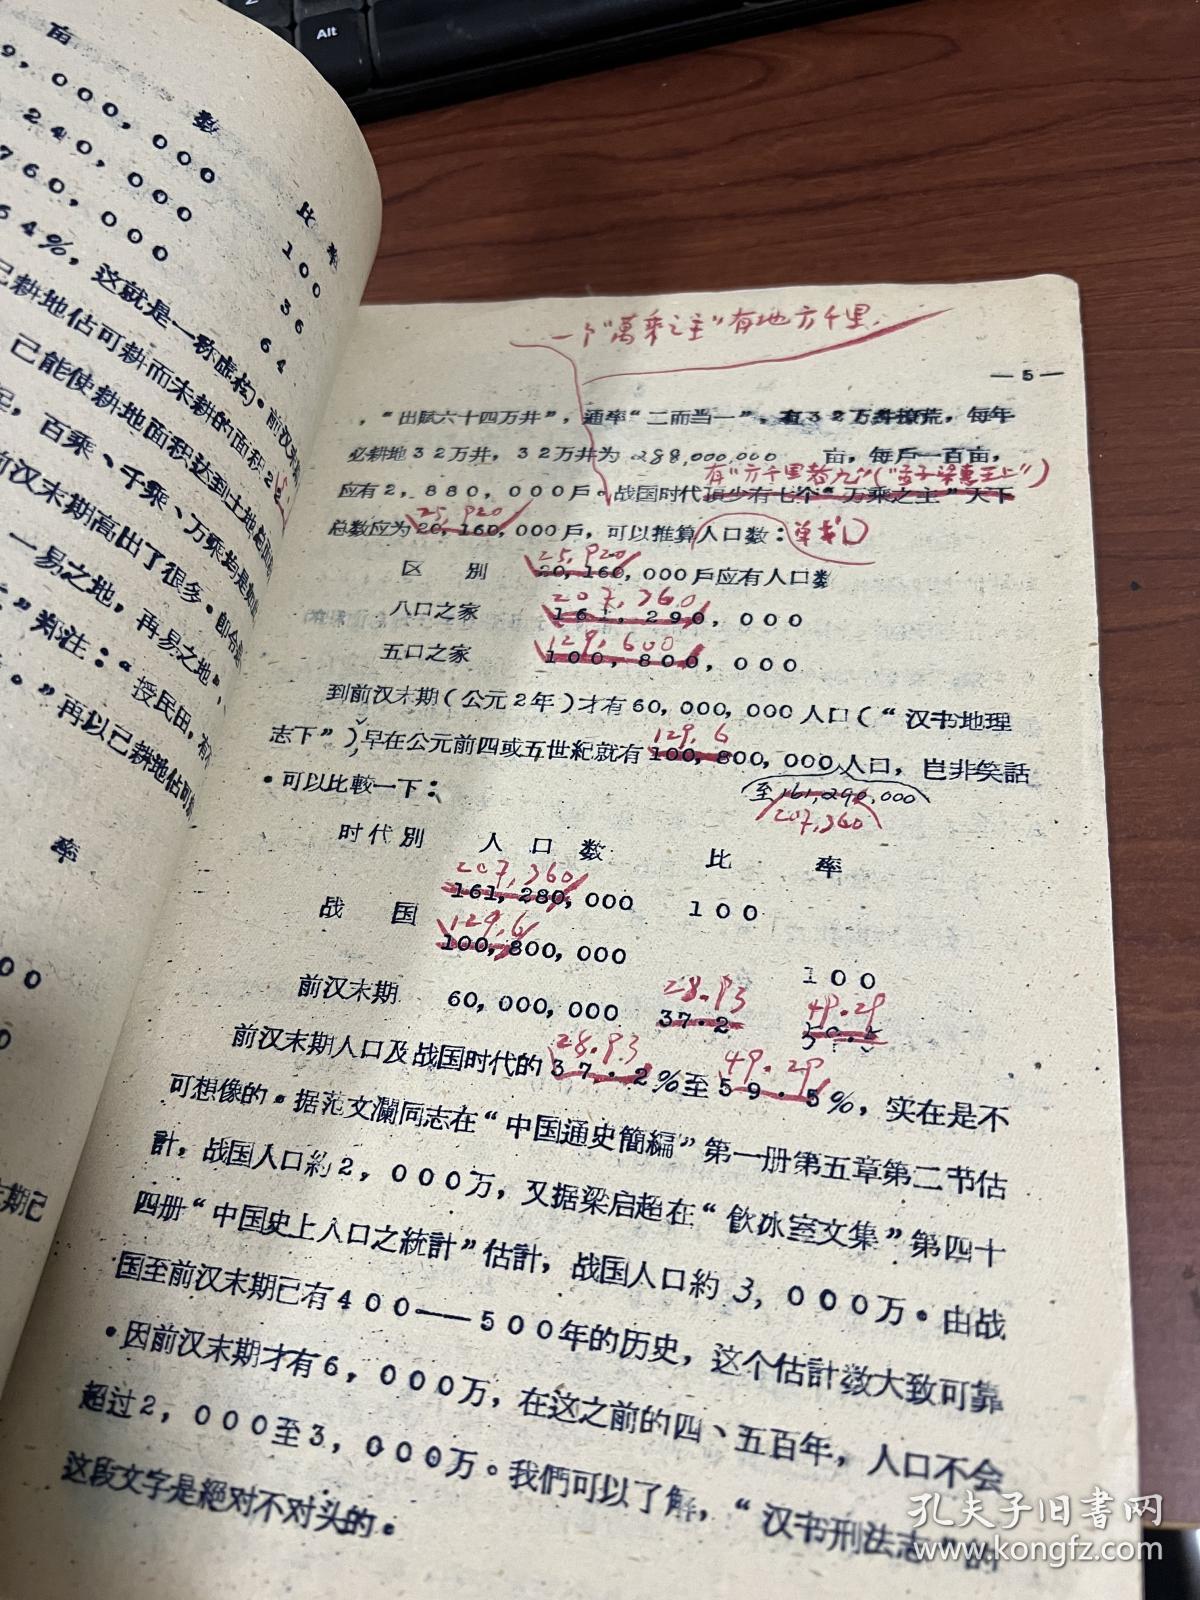 亩 数 比 率
9,000,000 100
240,000 36
760,000 64
64%,这就是一称虚构。前汉
已耕地佔可耕而未耕的面积
己能使耕地面积达到土地
百乘、千乘、万乘
前汉末期高出了很多。即令
一易之地,再易之地,
”郑注:“授民田,
。”再以已耕地佔可
率
00
0
末期已
一个“萬乘之主”有地方千里,
—5—
,“出赋六十四万井”,通率“二而当一”,有32万井撩荒,每年
必耕地32万井,32万井为288,000,000 亩,每戶一百亩,
有“方千里者九”(“孟子梁惠王上”)
应有2,880,000戶。战国时代頂少有七个“万乘之主”天下
25,920
总数应为20,160,000戶,可以推算人口数:
25,920
区 別 20,160,000戶应有人口数
207,360
八口之家 161,290,000
129,600
五口之家 100,800,000
到前汉末期(公元2年)才有60,000,000人口(“汉书地理
129.6
志下”),早在公元前四或五世紀就有100,800,000人口,岂非笑話
至161,290,000
207,360
。可以比較一下:
时代別 人口数 比 率
207,360
161,280,000 100
战 国
129,6
100,800,000 100
28.93 49.29
前汉末期 60,000,000 37.2 59.5
28.93 49.29
前汉末期人口及战国时代的37.2%至59.5%,实在是不
可想像的。据范文瀾同志在“中国通史簡編”第一册第五章第二节估
計,战国人口約2,000万,又据梁启超在“飲冰室文集”第四十
四册“中国史上人口之統計”估計,战国人口約3,000万。由战
国至前汉末期已有400——500年的历史,这个估計数大致可靠
。因前汉末期才有6,000万,在这之前的四、五百年,人口不会
超过2,000至3,000万。我們可以了解,“汉书刑法志”的
这段文字是絕对不对头的。
Alt
孔夫子旧書网
www.kongfz.com